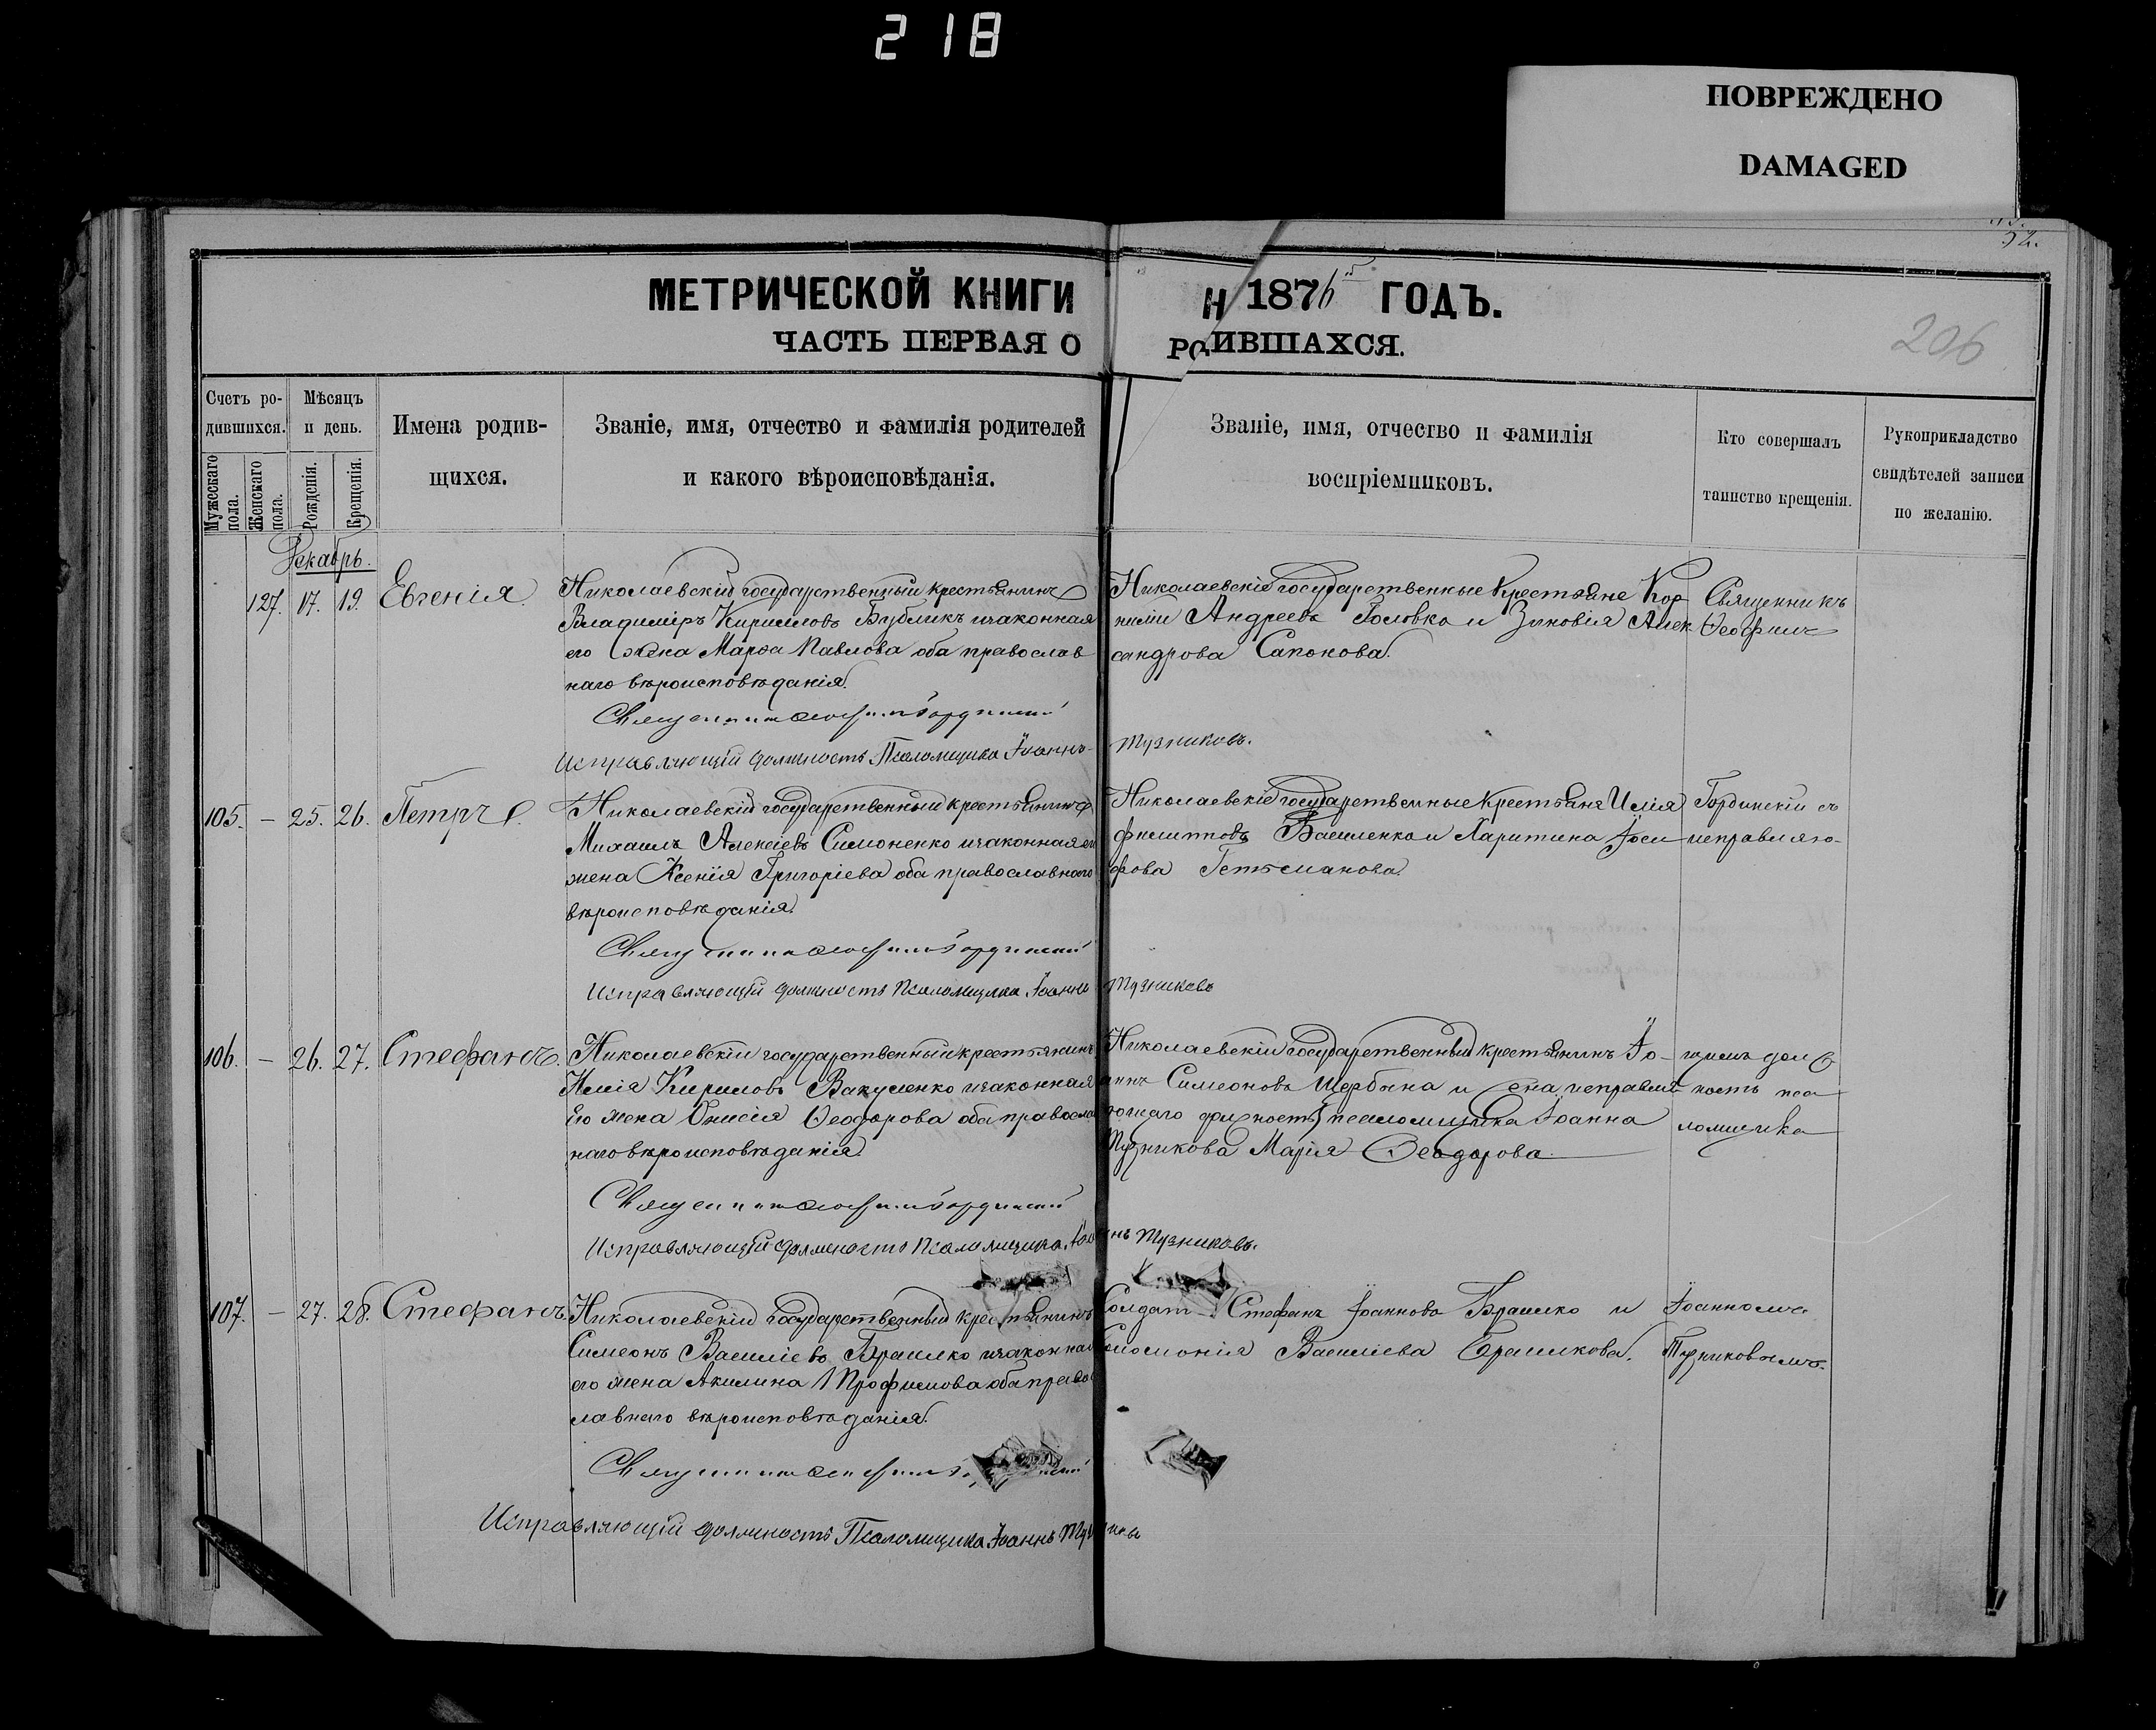 218
ПОВРЕЖДЕНО
DAMAGED
52.
206
МЕТРИЧЕСКОЙ КНИГИ Н 1876 ГОДЪ.
ЧАСТЬ ПЕРВАЯ О РОДИВШАХСЯ.
Счетъ ро-
дившихся.
Мужескаго пола.
Женскаго пола.
Мѣсяцъ
и день.
Рожденія.
Крещенія.
Имена родив-
щихся.
Званіе, имя, отчество и фамилія родителей
и какого вѣроисповѣданія.
Званіе, имя, отчество и фамилія
воспріемниковъ.
Кто совершалъ
таинство крещенія.
Рукоприкладство
свидѣтелей записи
по желанію.
Декабрь.
127. 17. 19. Евгенія.
Николаевскій государственный крестьянинъ
Владиміръ Кириловъ Бубликъ и законная
его жена Марѳа Павлова оба православ
наго вѣроисповѣданія.
Исправляющій должность Псаломщика Іоаннъ Тузниковъ.
Николаевскіе государственные крестьяне Кор
нилій Андреевъ Головко и Зиновія Алек
сандрова Сапонова.
Священникъ
Ѳеофилъ
105. — 25. 26. Петръ
Николаевскій государственный крестьянинъ
Михаилъ Алексіевъ Симоненко и законная его
жена Ксенія Григоріева оба православнаго
вѣроисповѣданія.
Исправляющій должность Псаломщика Іоаннъ Тузниковъ
Николаевскіе государственные крестьяне Илія
Филипповъ Василенко и Харитина Іоси
фова Гетьманова.
Гординскій съ
исправляю-
106. — 26. 27. Стефанъ.
Николаевскій государственный крестьянинъ
Илія Кириловъ Вакуленко и законная
его жена Онисія Ѳеодорова оба правосла
наго вѣроисповѣданія.
Исправляющій должность Псаломщика Іоаннъ Тузниковъ.
Николаевскій государственный крестьянинъ Іо-
аннъ Симеоновъ Щербина и жена исправля
ющаго должность псаломщика Іоанна
Тузникова Марія Ѳеодорова
щимъ долж
ность пса
ломщика
107. — 27. 28. Стефанъ.
Николаевскій государственный крестьянинъ
Симеонъ Васильевъ Брашко и законная
его жена Акилина Трофимова оба право
лавнаго вѣроисповѣданія.
Исправляющій должность Псаломщика Іоаннъ
Солдат Стефанъ Іоанновъ Брашко и
Соломонія Васильева Брашкова.
Іоанномъ
Тузниковымъ.